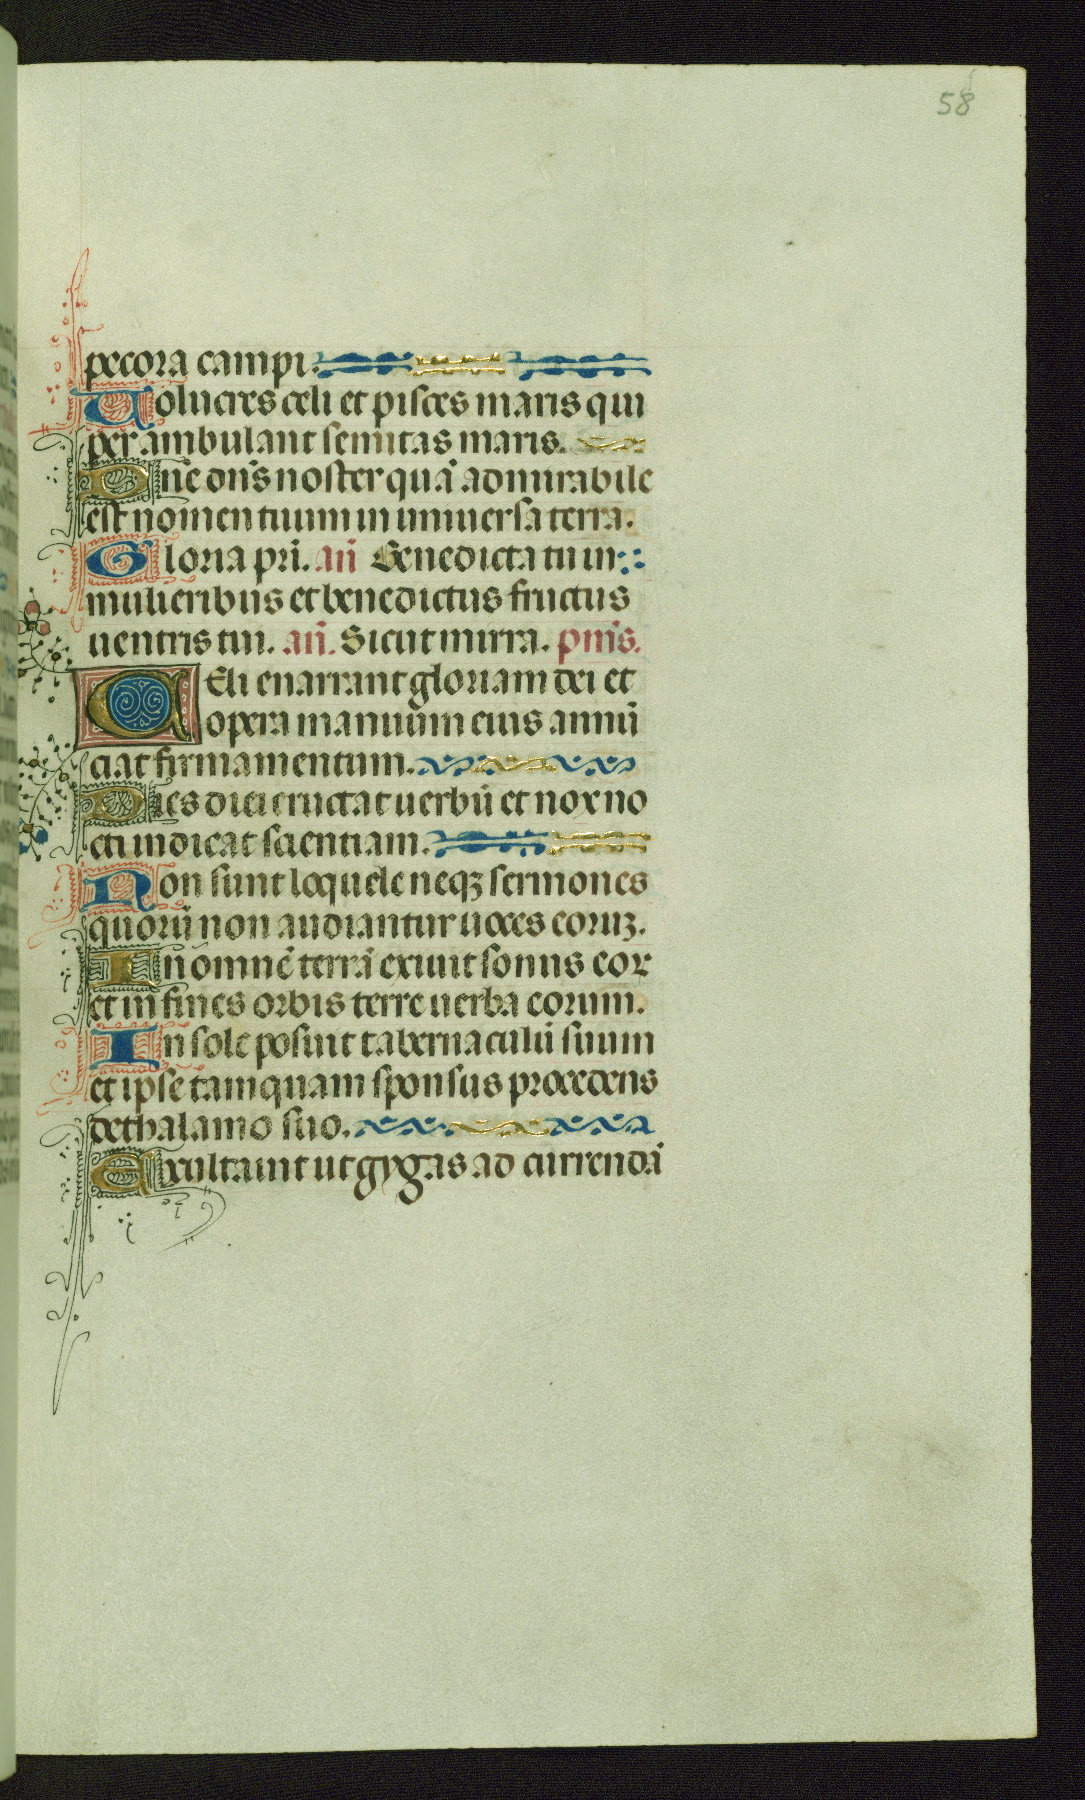 58
pecora campi.
Uolucres celi et pisces maris qui
perambulant semitas maris.
Dn̄e dn̄s noster quā admirabile
est nomen tuum in uniuersa terra.
Gloria pr̄i. an̄ Benedicta tu in
mulieribus et benedictus fructus
uentris tui. an̄. Sicut mirra. pm̄s.
CEli enarrant gloriam dei et
opera manuum eius annū
ciat firmamentum.
Dies diei eructat uerbū et nox no
cti indicat scientiam.
Non sunt loquele neqꝫ sermones
quorū non audiantur uoces eoruꝫ.
In omnē terrā exiuit sonus eoꝝ
et in fines orbis terre uerba eorum.
In sole posuit tabernaculū suum
et ipse tamquam sponsus procedens
de thalamo suo.
Exultauit ut gygas ad currendā